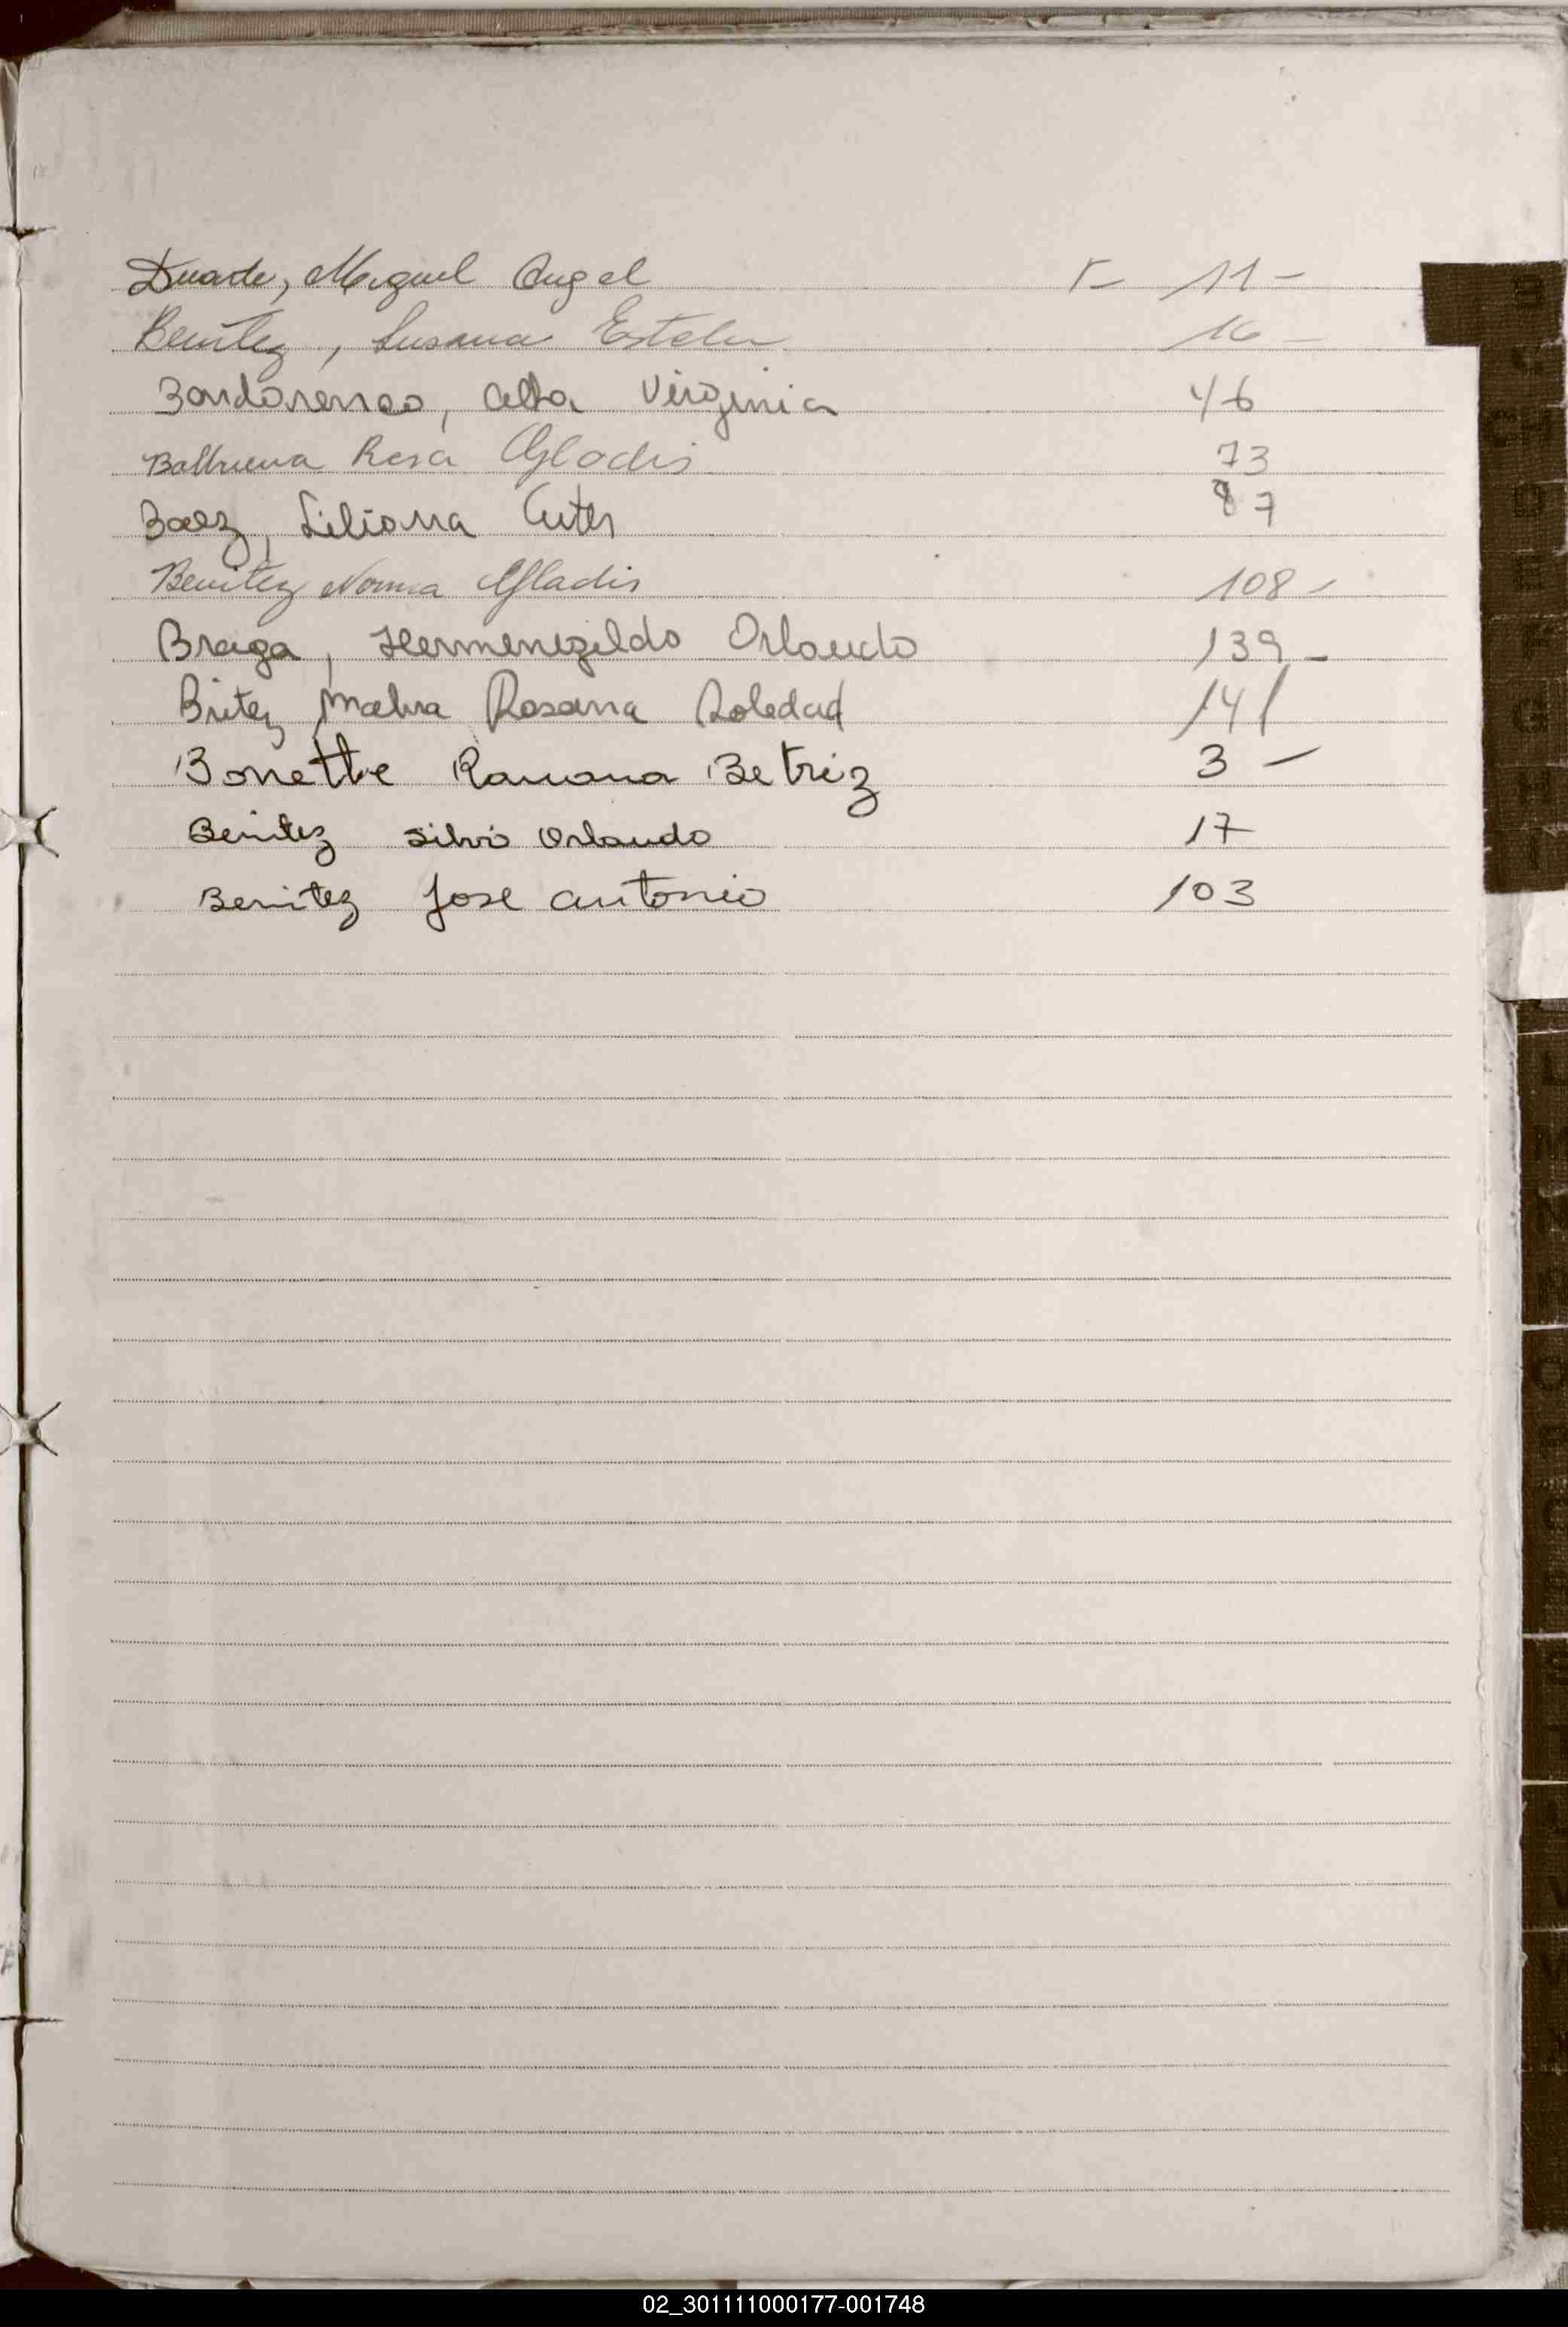 Duarte, Miguel Angel 11 -
Benitez, Susana Estela 16 -
Bondarenco, Alba Virginia 46
Balbuena Rosa Gladis 73
Baez, Liliana 87
Benitez Norma Gladis 108 -
Braga, Hermenegildo Orlando 139 -
Britez Rosana Soledad 141
Ramona Betriz 3 -
Benitez Silvio Orlando 17
Benitez Jose antonio 103
02_301111000177-001748